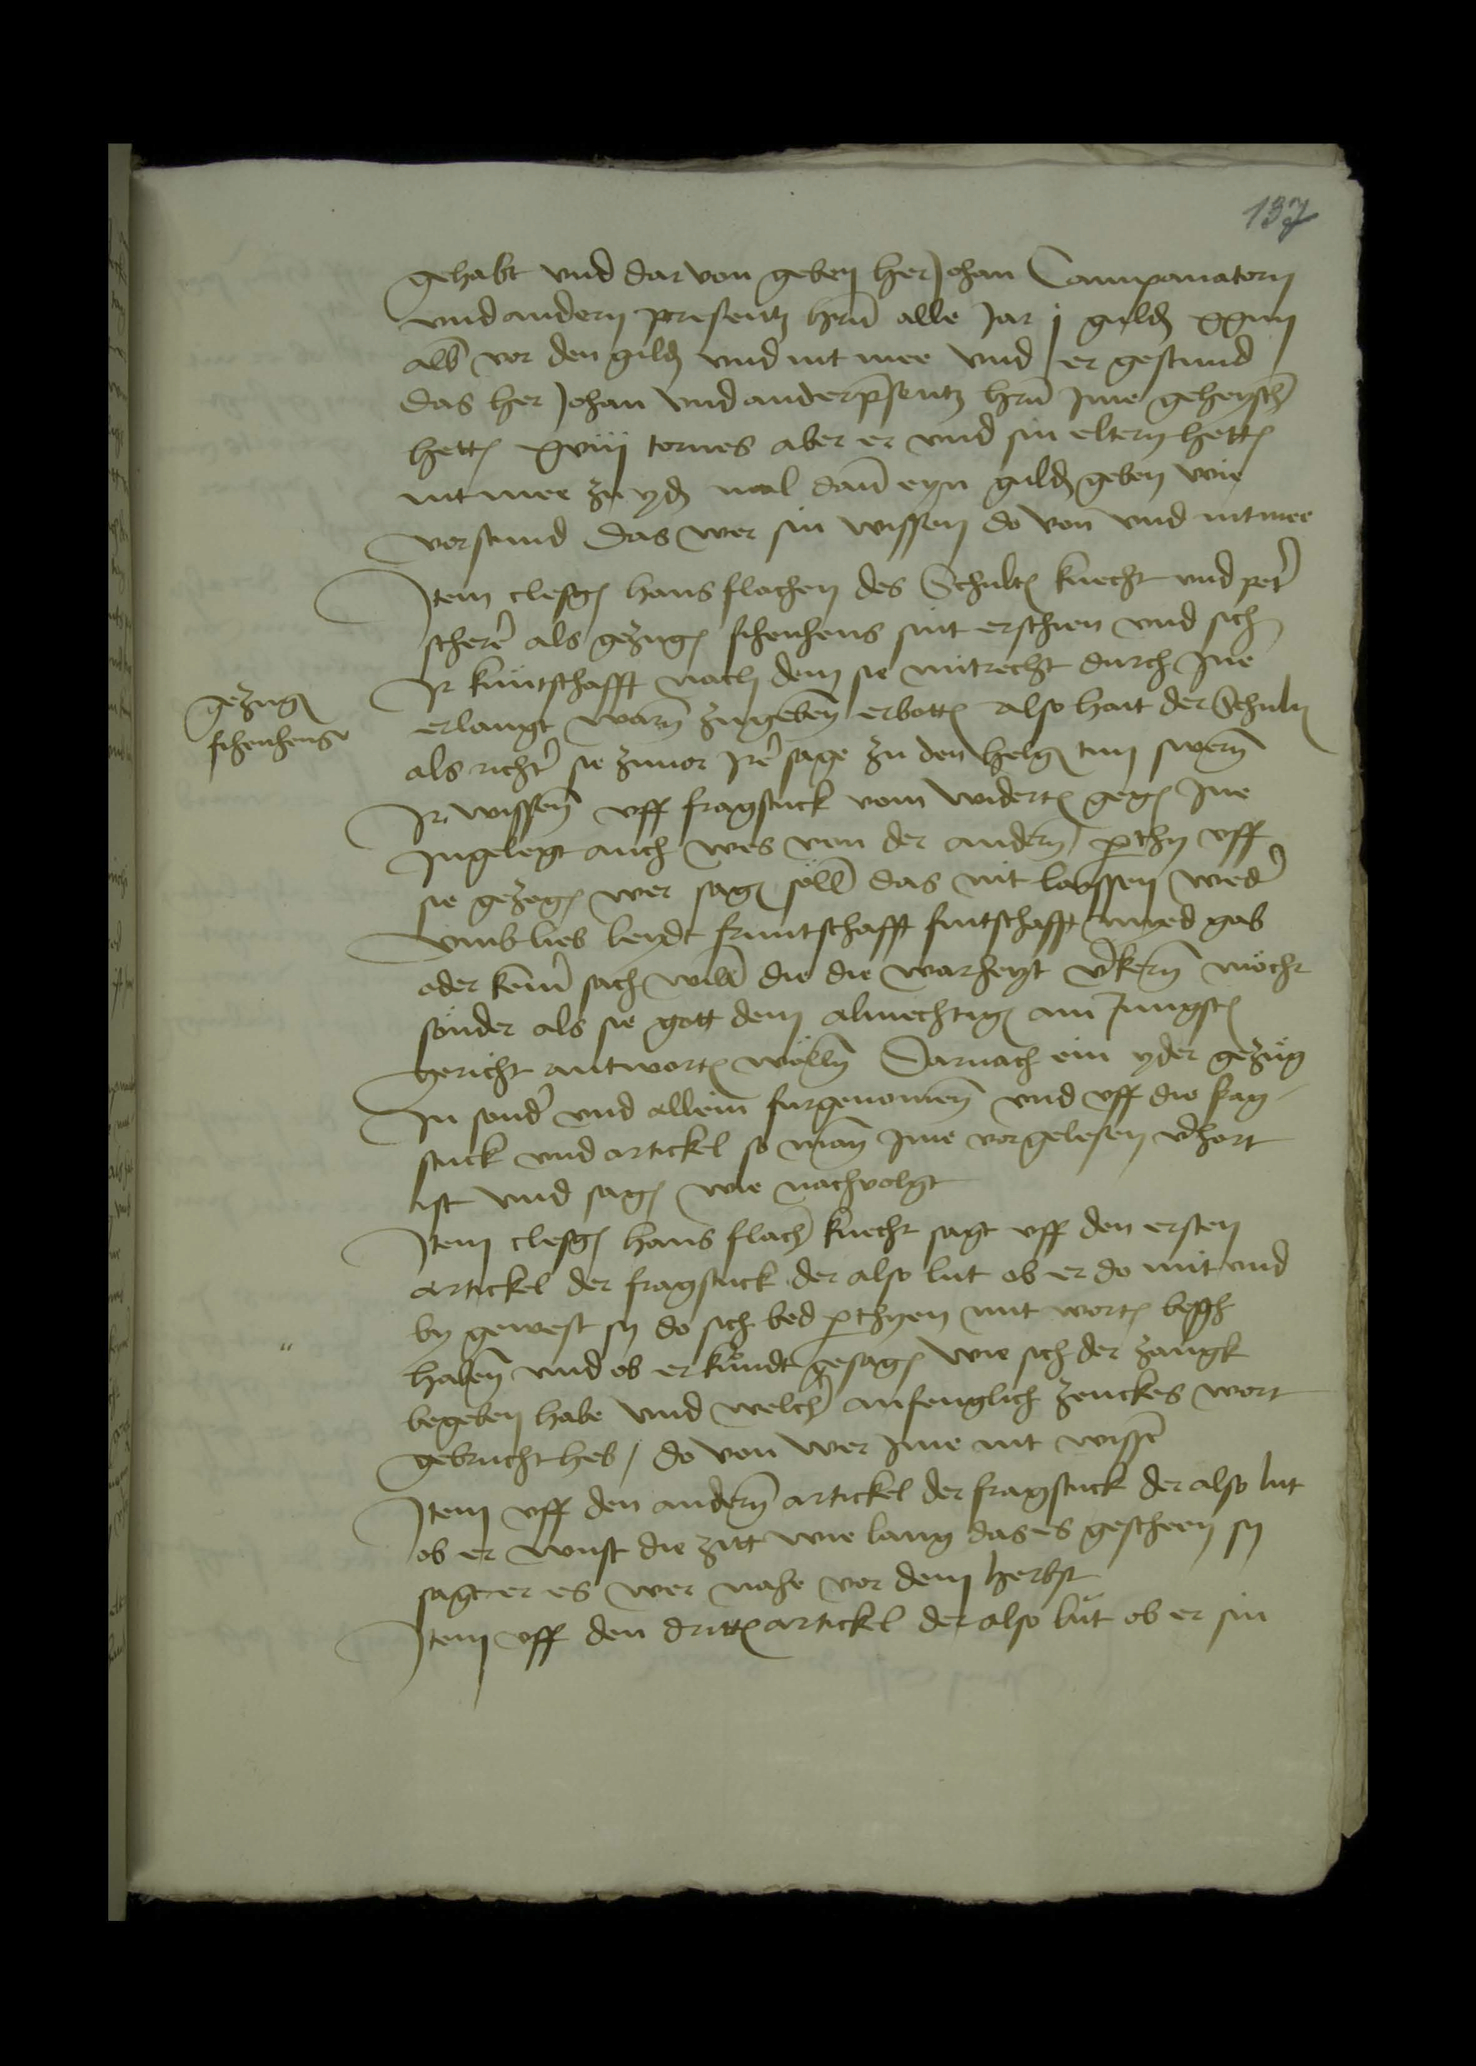 137
gehabt vnd dar von geben her Johan Campanatorn
vnd andern presentz hrn̄ alle Jar j guld xxiiij
alb vor den guld vnd nit mee vnd er gestund
das her Johan vnd ander p̄sentz hrn̄ Jme geheysch
hett xviij tornes aber er vnd sin eltern hett
nit mee zu yd mal dan̄ eyn guld geben wie
vorstund das wer sin wissen do von vnd nit mee
Jtem clesg hans flachen des Schult knecht vnd pet
scher als gezug sint erschien vnd sich
Jr kuntschafft nach dem sie mit recht durch Jne
erlangt warn̄ zugeben̄ erbott also hait der Schult
als richt sie zuuor Jre sage zu den helg tun swern̄
Jr wissen̄ vff fragstuck vom widert geg Jne
Jngelegt auch wes von der andern̄ p̱thy vff
sie gezog wer sag soll das nit lassen wed
vmb lieb leydt fruntschafft fintschafft myed gab
oder keinr sach will die die warheyt v̄kern̄ mocht
sonder als sie gott dem almechtig am Jungst
gericht antwort wölln̄ Darnach ein yder gezüg
Jn sond vnd allein furgenomen̄ vnd vff die frag
stuck vnd artickel so man̄ Jme vorgelesen v̄hort
ist vnd sag wie nachvolgt
Jtem clesg hans flach knecht sagt vff den ersten
artickel der fragstuck der also lut ob er do mit vnd
by gewest sy do sich bed p̱thyen mit wort
haben̄ vnd ob er kundt gesag wie sich der zangk
begeben habe vnd welch anfenglich zenckes wort
gebrucht heb / do von wer Jme nit wiss
Jtem vff den andern̄ artickel der fragstuck der also lut
ob er wust die zitt wie lang das es gescheen sy
sagt er es wer nahe vor dem herbst
Jtem vff den dritt artickel der also lut ob er sin
gezug